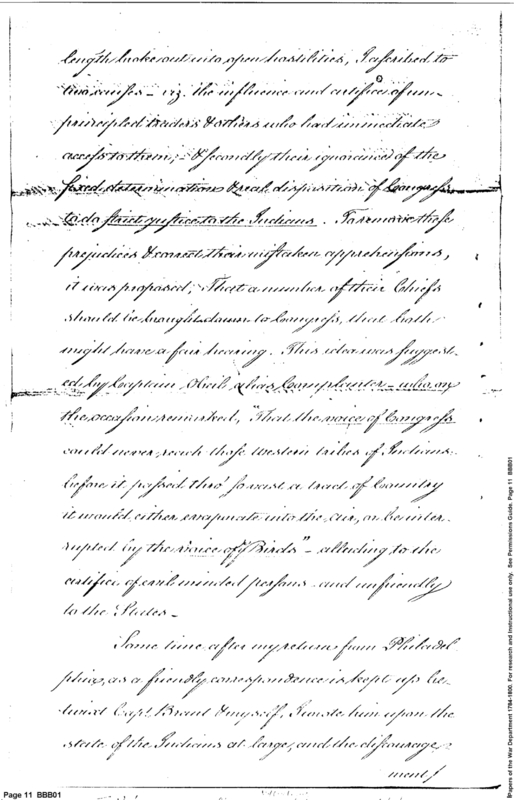 length broke out into open hostilities, I ascribed to
two causes – viz. the influence and artifice of un-
principled traders & others who had immediate
access to them; – & secondly their ignorance of the
fixed determination & real disposition of Congress
to do strict justice to the Indians. To remove those
prejudices & correct their mistaken apprehensions,
it was proposed, That a number of their Chiefs
should be brought down to Congress, that both
might have a fair hearing. This idea was suggest-
ed by Captain Obeil alias Cornplanter – who on
the occasion remarked, "That the voice of Congress
could never reach those western tribes of Indians.
before it passed thro' so vast a tract of Country
it would either evaporate into the air, or be inter-
rupted by the voice of Birds" – alluding to the
artifice of evil minded persons and unfriendly
to the States –
Some time after my return from Philadel-
phia, as a friendly correspondence is kept up be-
twixt Capt. Brant & myself, I wrote him upon the
state of the Indians at large, and the discourage-
ment/
Page 11 BBB01
Papers of the War Department 1784-1800. For research and instructional use only. See Permissions Guide. Page 11 BBB01